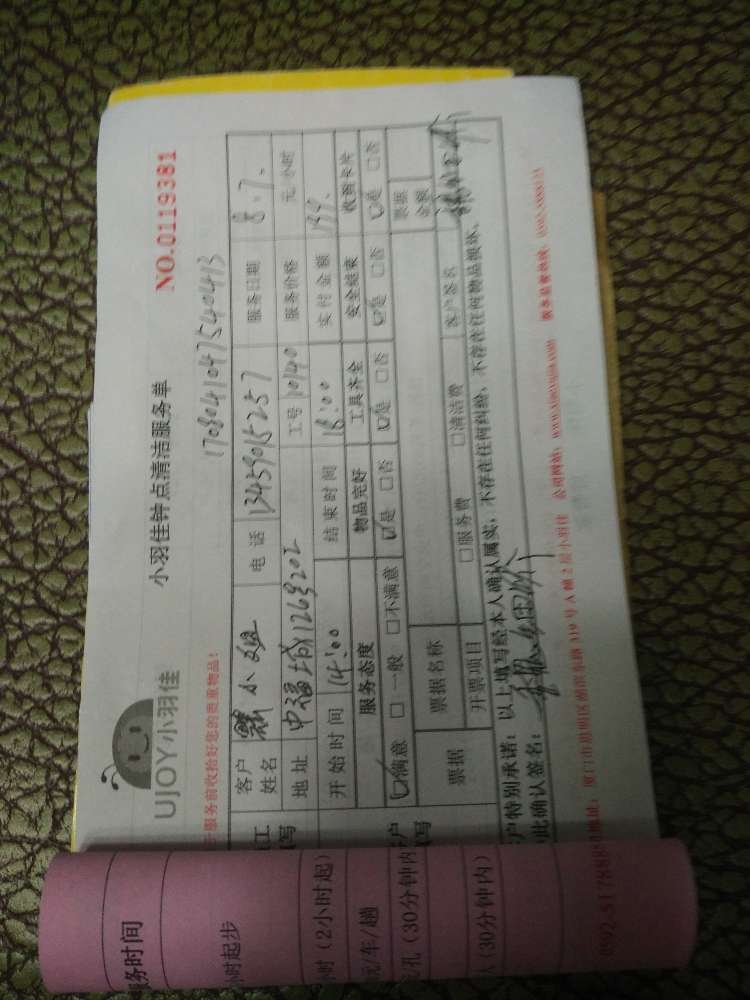 UJOY小羽佳
小羽佳钟点清洁服务单
NO.0119381
于服务前收拾好您的贵重物品！
1708041047540413
客户姓名 小姐 电话 13459015257 服务日期 8.7.
地址 中福城126号202 工号 10140 服务价格 元/小时
开始时间 14:00 结束时间 18:00 实付金额
服务态度 物品完好 工具齐全 安全结束 收到名片
☑满意 □一般 □不满意 ☑是 □否 ☑是 □否 ☑是 □否 ☑是 □否
票据 票据名称 票据金额
开票项目 □服务费 □清洁费 客户签名
户特别承诺：以上填写经本人确认属实，不存在任何纠纷，不存在任何物品损坏。
此确认签名：
地址：厦门市思明区湖滨东路319号A幢2层小羽佳 公司网站：www.xiaoyujia.com 服务监督热线：
服务时间
小时起步
时（2小时起）
元/车/趟
孔（30分钟内
人（30分钟内）